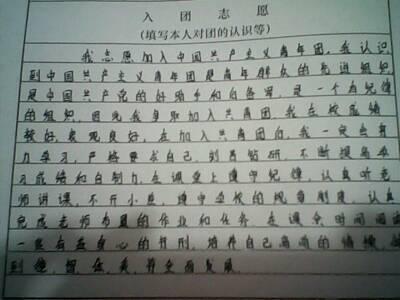 入 团 志 愿
(填写本人对团的认识等)
我志愿加入中国共产主义青年团,我认识
到中国共产主义青年团是青年群众的先进组织
是中国共产党的好助手和后备军,是一个有纪律
的组织,因此我争取加入共青团。我在校成绩
较好,表现良好,在加入共青团后,我一定会努
力学习,严格要求自己,刻苦钻研,不断提高学
习成绩和自制力,在课堂上遵守纪律,认真听老
师讲课,不开小差,遵守学校的规章制度,认真
完成老师布置的作业和任务,在课余时间阅读
一些有益的书刊,培养自己高尚的情操,做
到德、智、体、美、劳全面发展。